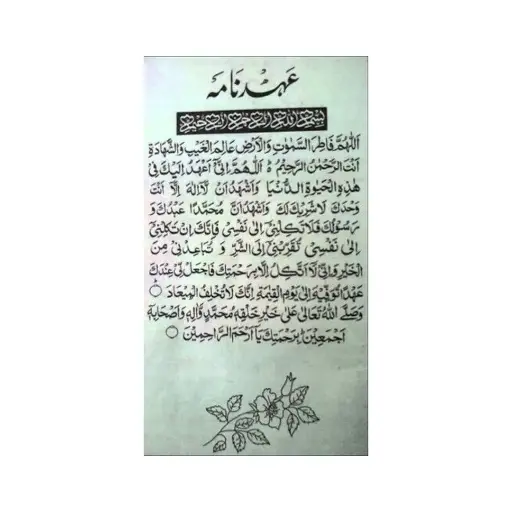 عہد نامہ
بسم الله الرحمن الرحيم
اَللّٰهُمَّ فَاطِرَ السَّمٰوٰتِ وَالْاَرْضِ عَالِمَ الْغَيْبِ وَالشَّهَادَةِ
اَنْتَ الرَّحْمٰنُ الرَّحِيْمُ ○ اَللّٰهُمَّ اِنِّىْ اَعْهَدُ اِلَيْكَ فِىْ
هٰذِهِ الْحَيٰوةِ الدُّنْيَا وَاَشْهَدُ اَنْ لَّا اِلٰهَ اِلَّا اَنْتَ
وَحْدَكَ لَا شَرِيْكَ لَكَ وَاَشْهَدُ اَنَّ مُحَمَّدًا عَبْدُكَ وَ
رَسُوْلُكَ فَلَا تَكِلْنِىْ اِلٰى نَفْسِىْ فَاِنَّكَ اِنْ تَكِلْنِىْ
اِلٰى نَفْسِىْ تُقَرِّبْنِىْ اِلَى الشَّرِّ وَ تُبَاعِدْنِىْ مِنَ
الْخَيْرِ وَاِنِّىْ لَا اَتَّكِلُ اِلَّا بِرَحْمَتِكَ فَاجْعَلْ لِّىْ عِنْدَكَ
عَهْدًا تُوَفِّيْهِ اِلٰى يَوْمِ الْقِيٰمَةِ اِنَّكَ لَا تُخْلِفُ الْمِيْعَادَ ○
وَصَلَّى اللّٰهُ تَعَالٰى عَلٰى خَيْرِ خَلْقِهٖ مُحَمَّدٍ وَّاٰلِهٖ وَاَصْحَابِهٖ
اَجْمَعِيْنَ ط بِرَحْمَتِكَ يَا اَرْحَمَ الرَّاحِمِيْنَ ○